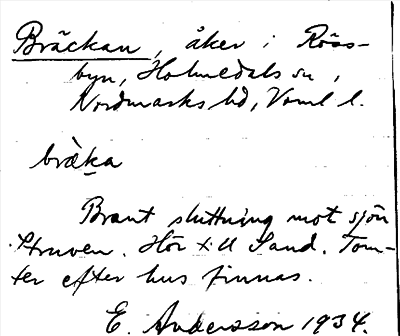 Bräckan, åker i Röss-
byn, Holmedals sn,
Nordmarks hd, Vrml l.
bràka
Brant sluttning mot sjön
Struven. Hör till Sand. Tom-
ter efter hus finnas.
E. Andersson 1934.